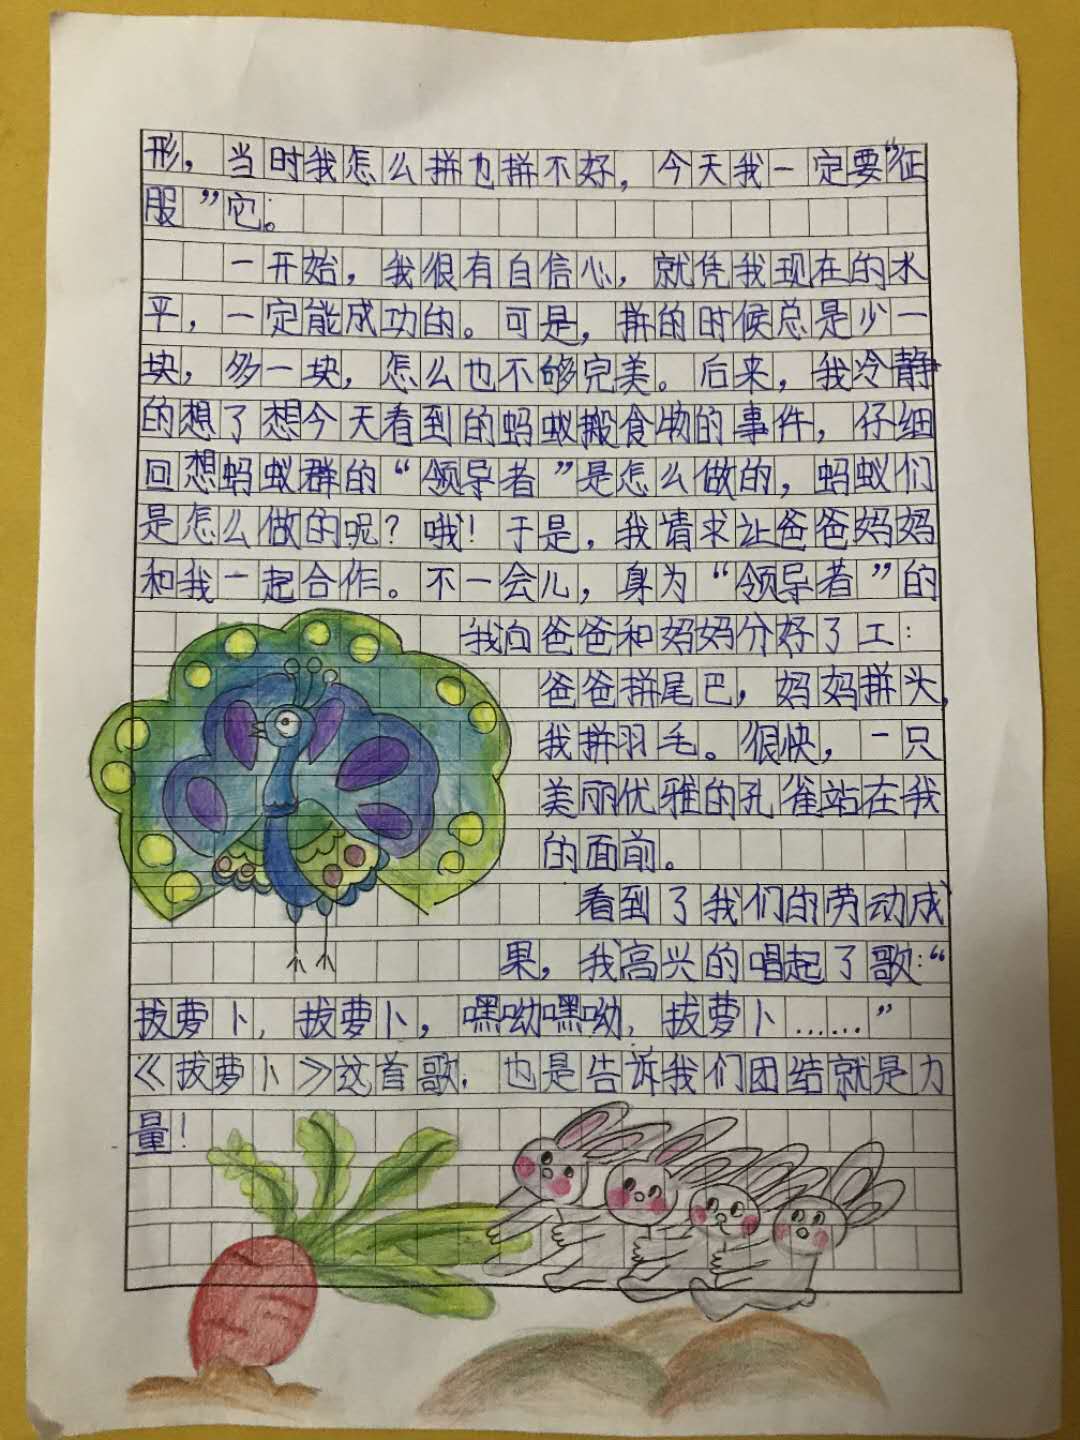 形，当时我怎么拼也拼不好，今天我一定要“征
服”它。
一开始，我很有自信心，就凭我现在的水
平，一定能成功的。可是，拼的时候总是少一
块，多一块，怎么也不够完美。后来，我冷静
的想了想今天看到的蚂蚁搬食物的事件，仔细
回想蚂蚁群的“领导者”是怎么做的，蚂蚁们
是怎么做的呢？哦！于是，我请求让爸爸妈妈
和我一起合作。不一会儿，身为“领导者”的
我向爸爸和妈妈分好了工：
爸爸拼尾巴，妈妈拼头，
我拼羽毛。很快，一只
美丽优雅的孔雀站在我
的面前。
看到了我们的劳动成
果，我高兴的唱起了歌：“
拔萝卜，拔萝卜，嘿呦嘿呦，拔萝卜……”
《拔萝卜》这首歌，也是告诉我们团结就是力
量！